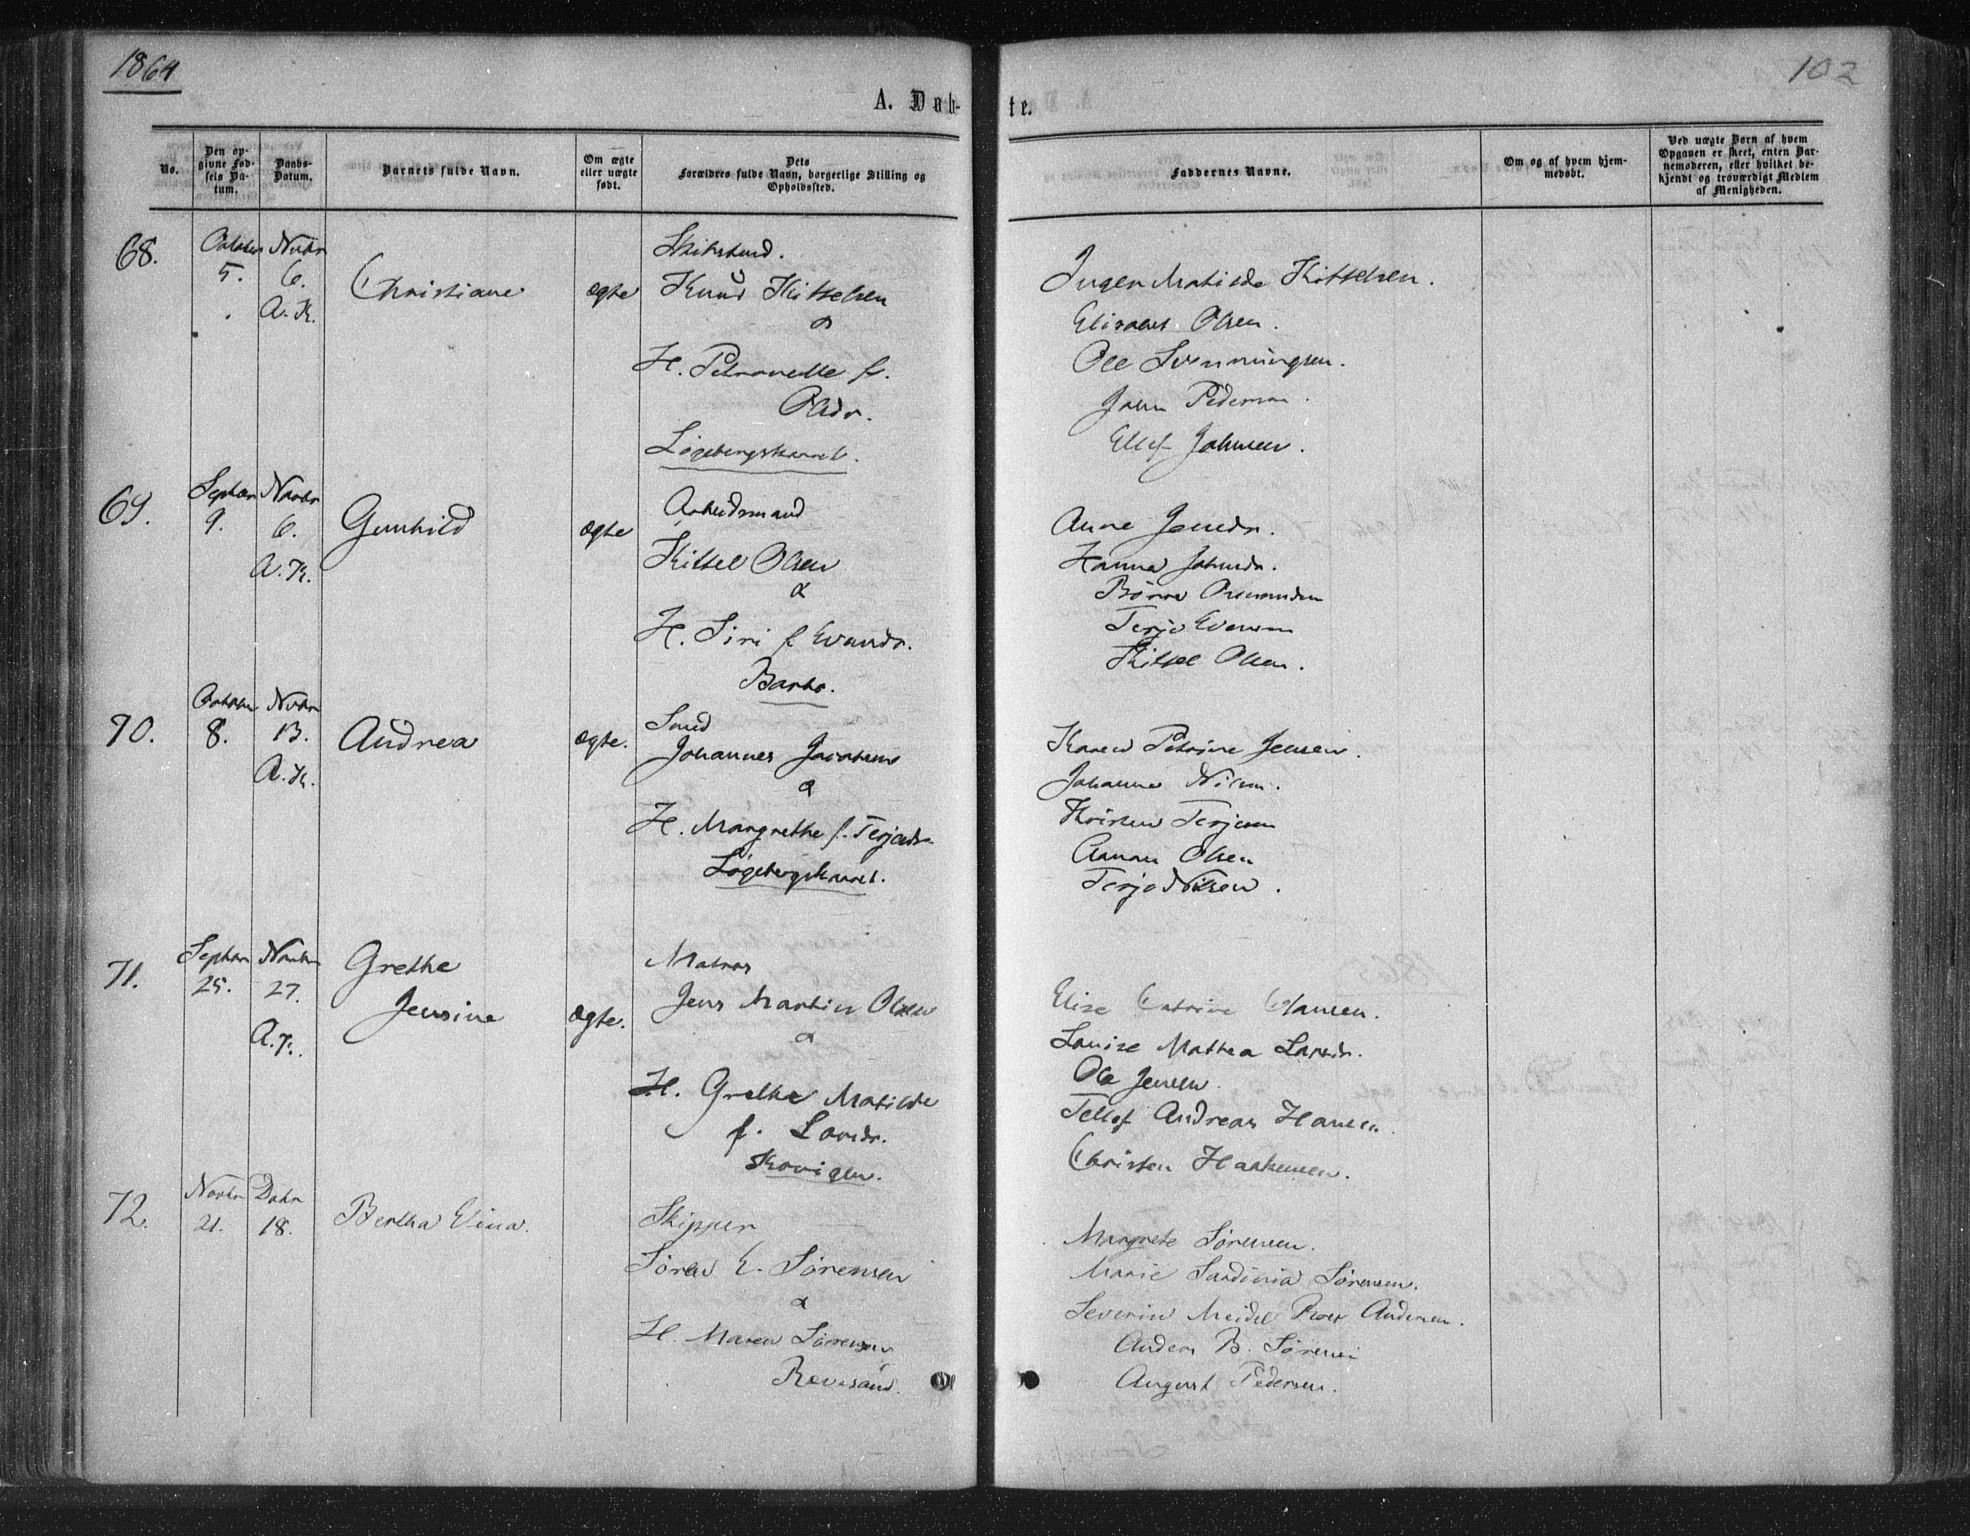 1864
102
A. Døb-
te.
No.
Den op-
givne Fød-
sels Da-
tum.
Daabs-
Datum.
Barnets fulde Navn.
Om ægte
eller uægte
født.
Dets
Forældres fulde Navn, borgerlige Stilling og
Opholdssted.
Faddernes Navne.
Om og af hvem hjem-
medøbt.
Ved uægte Børn af hvem
Opgaven er skeet, enten Bar-
nemoderen, eller hvilket be-
kjendt og troværdigt Medlem
af Menigheden.
68.
October
5.
Novbr
6.
A. K.
Christiane
ægte
Knud Kittelsen
&
H. Petronelle f.
Olsdr.
Løgebergskarret.
Inger Matilde Kittelsen.
Olsen.
Ole Svenningsen.
John Pedersen.
Ellef Johnsen.
69.
Septbr
9.
Novbr
6.
A. K.
Gunhild
ægte
Arbeidsmand
Kittel Olsen
&
H. Siri f Evandr.
Barbo.
Anne Jensdr.
Hanna Johnsdr.
Terje Evensen
Kittel Olsen.
70.
October
8.
Novbr
13.
A. K.
Andrea
ægte.
Smed
Johannes Jacobsen
&
H. Margrethe f. Terjesdr.
Løgebergskarret.
Karen Petrine Jensen.
Johanne Nilsen.
Kristen Terjesen
Aanon Olsen
Terje Nilsen.
71.
Septbr
25.
Novbr
27.
A. K.
Grethe
Jensine
ægte.
Matros
Jens Martin Olsen
&
H. Grethe Matilde
f. Larsdr.
Skovigen.
Elise Catrine Clausen.
Louise Mathea Larsdr.
Ole Jensen.
Tellef Andreas Hansen
Christen Haakensen.
72.
Novbr
21.
Decbr
18.
Bertha Elina.
Skipper
Søren E. Sørensen
&
H. Maren Sørensen
Revesand.
Margrete Sørensen.
Marie Sardinia Sørensen.
Severin Meidel Andersen.
Anders B. Sørensen
August Pedersen.